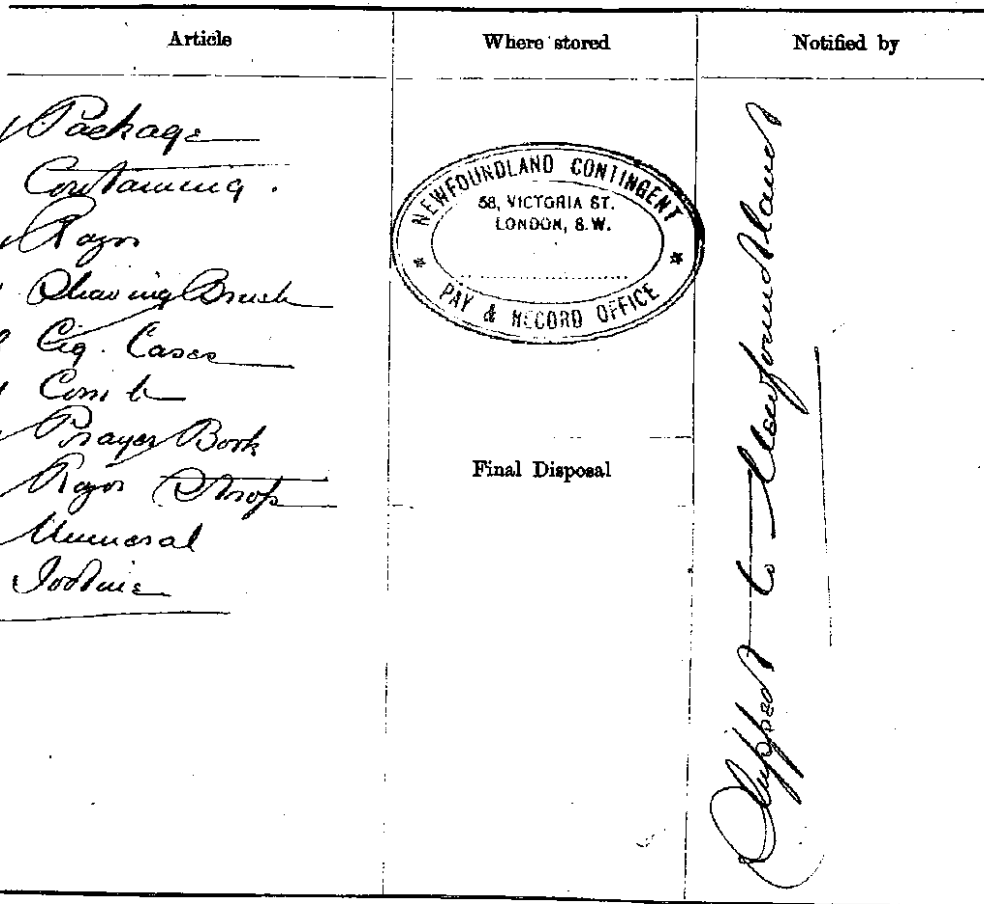 Article
Where stored
Notified by
Package
Containing.
Razor
Shaving Brush
Cig. Cases
Comb
Prayer Book
Razor Strop
Numeral
Iodine
NEWFOUNDLAND CONTINGENT
58, VICTORIA ST.
LONDON, S.W.
PAY & RECORD OFFICE
Final Disposal
Shipped to Newfoundland